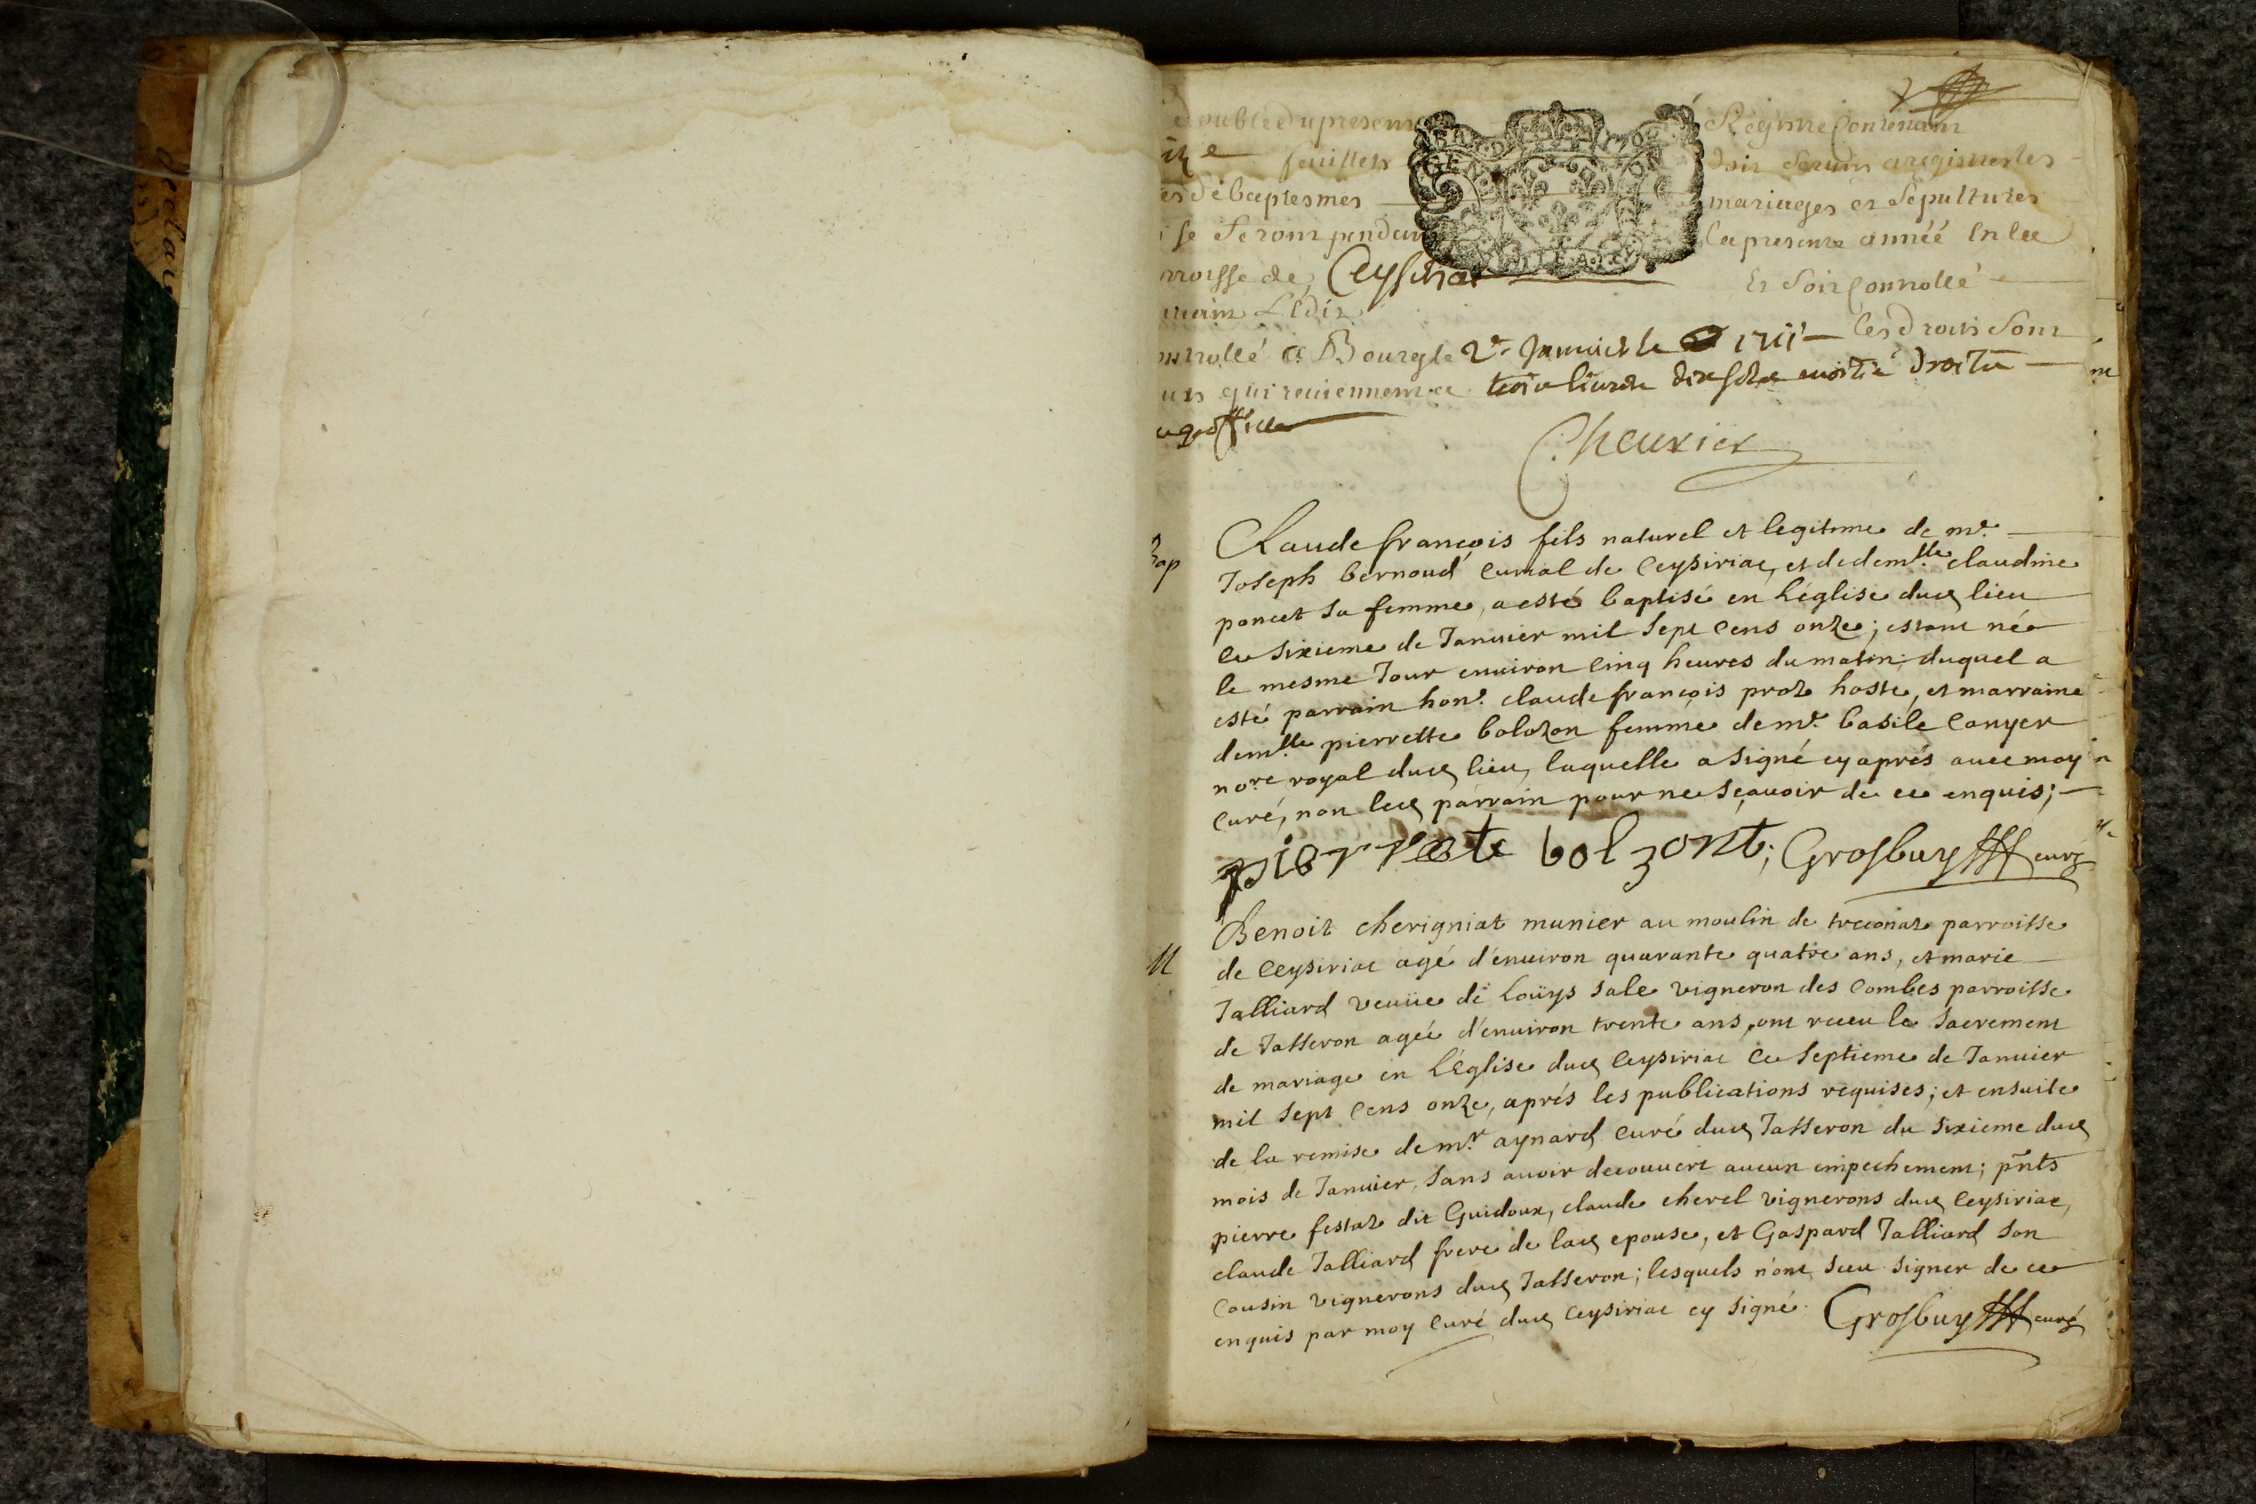 double du present Registre Contenant
feuillets doit Servir a registrer les
es de baptesmes mariages et Sepultures
se feront pendant la presente année En la
roisse de Ceyseria Et Soit Controllé
L'Edit
ontrollé A Bourg le 2e Januier 1711 les droits sont
qui reuiennent a trois liures dix sols moitié droits
Cheurier
Bap
Claude françois fils naturel et legitime de mr.
Joseph bernoud curial de Ceysiriac, et de demlle. claudine
poncet sa femme, a esté baptisé en L'église dud lieu
ce sixieme de Januier mil sept cens onze; estant né
le mesme Jour enuiron cinq heures du matin; duquel a
esté parrain hone. claude françois proz hoste, et marraine
demlle pierrette bolozon femme de mr. basile Canyer
nore royal dud lieu, laquelle a signé cy aprés auec moy
curé, non led parrain pour ne sçauoir de ce enquis;
pierrete bolzont; Grosbuy curé
M
Benoit cherigniat munier au moulin de treconaz parroisse
de Ceysiriac agé d'enuiron quarante quatre ans, et marie
Talliard veuüe de Loüys sale vigneron des Combes parroisse
de Jasseron agée d'enuiron trente ans, ont receu le sacrement
de mariage en L'Eglise dud Ceysiriac ce septieme de Januier
mil sept cens onze, aprés les publications requises; et ensuite
de la remise de mr. aynard curé dud Jasseron du sixieme dud
mois de Januier, sans auoir decouuert aucun empechement; pnts
pierre festaz dit Guidoux, claude cherel vignerons dud Ceysiriac,
claude Talliard frere de lad epouse, et Gaspard Talliard son
Cousin vignerons dud Jasseron; lesquels n'ont sceu signer de ce
enquis par moy curé dud Ceysiriac cy signé. Grosbuy curé